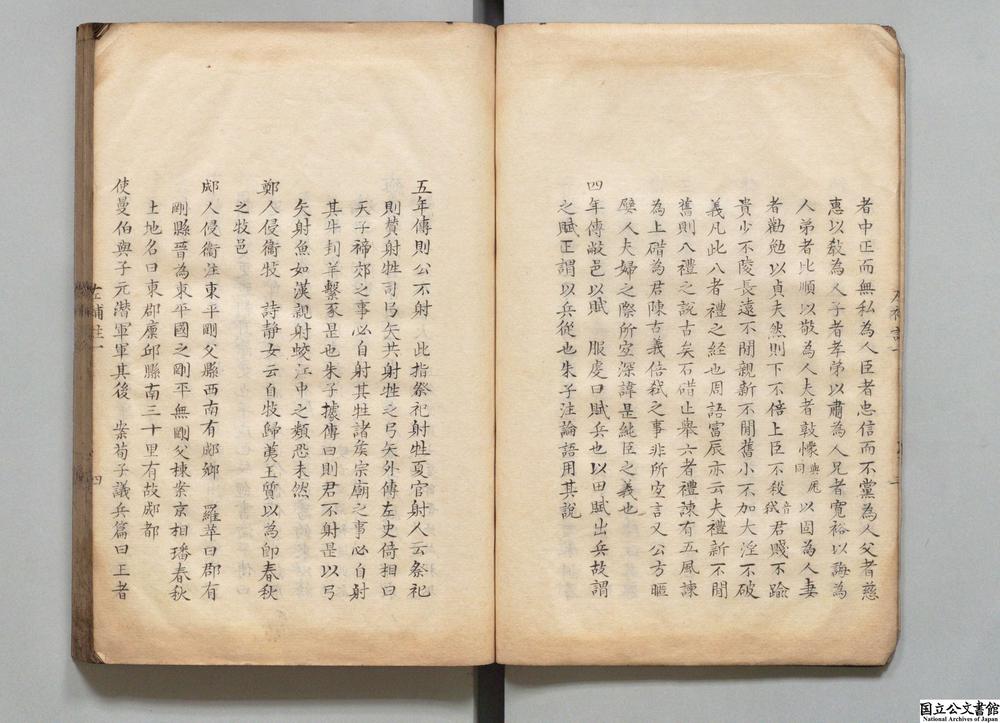 者中正而無私為人臣者忠信而不黨為人父者慈
惠以敎為人子者孝弟以肅為人兄者寬裕以誨為
人弟者比順以敬為人夫者敦懞以固為人妻
者勸勉以貞夫然則下不倍上臣不殺音弑君賤不踰
貴少不陵長遠不閒親新不閒舊小不加大淫不破
義凡此八者禮之經也周語富辰亦云夫禮新不閒
舊則八禮之說古矣石碏止舉六者禮諫有五風諫
為上碏為君陳古義倍弑之事非所宜言又公方匼
嬖人夫婦之際所宜深諱是純臣之義也
四年傳敝邑以賦 服虔曰賦兵也以田賦出兵故謂
之賦正謂以兵從也朱子注論語用其說
五年傳則公不射 此指祭祀射牲夏官射人云祭祀
則贊射牲司弓矢共射牲之弓矢外傳左史倚相曰
天子禘郊之事必自射其牲諸矦宗廟之事必自射
其牛刲羊擊豕是也朱子據傳曰則君不射是以弓
矢射魚如漢武親射蛟江中之類恐未然
鄭人侵衞牧 詩靜女云自牧歸荑王質以為卽春秋
之牧邑
郕人侵衞注東平剛父縣西南有郕鄉 羅苹曰郡有
剛縣晉為東平國之剛平無剛父棟案京相璠春秋
土地名曰東郡廩邱縣南三十里有故郕都
使曼伯與子元潛軍軍其後 案荀子議兵篇曰王者
左補註一
四
国立公文書館
National Archives of Japan